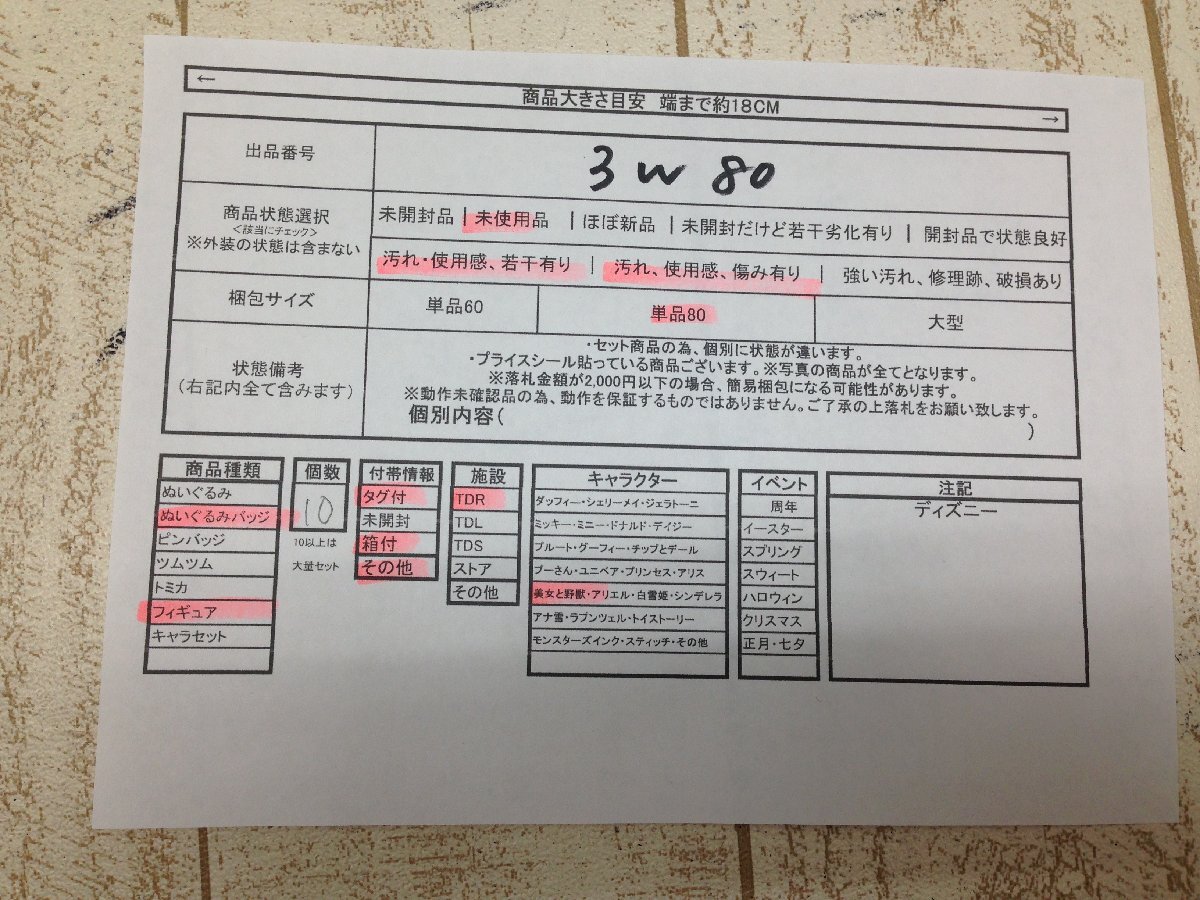 ←
商品大きさ目安　端まで約18CM
→
出品番号
3W80
商品状態選択
<該当にチェック>
※外装の状態は含まない
未開封品 | 未使用品 | ほぼ新品 | 未開封だけど若干劣化有り | 開封品で状態良好
汚れ・使用感、若干有り | 汚れ、使用感、傷み有り | 強い汚れ、修理跡、破損あり
梱包サイズ
単品60
単品80
大型
状態備考
(右記内全て含みます)
・セット商品の為、個別に状態が違います。
・プライスシール貼っている商品ございます。※写真の商品が全てとなります。
※落札金額が2,000円以下の場合、簡易梱包になる可能性があります。
※動作未確認品の為、動作を保証するものではありません。ご了承の上落札をお願い致します。
個別内容(
)
商品種類
ぬいぐるみ
ぬいぐるみバッジ
ピンバッジ
ツムツム
トミカ
フィギュア
キャラセット
個数
10
10以上は
大量セット
付帯情報
タグ付
未開封
箱付
その他
施設
TDR
TDL
TDS
ストア
その他
キャラクター
ダッフィー・シェリーメイ・ジェラトーニ
ミッキー・ミニー・ドナルド・デイジー
プルート・グーフィー・チップとデール
プーさん・ユニベア・プリンセス・アリス
美女と野獣・アリエル・白雪姫・シンデレラ
アナ雪・ラプンツェル・トイストーリー
モンスターズインク・スティッチ・その他
イベント
周年
イースター
スプリング
スウィート
ハロウィン
クリスマス
正月・七夕
注記
ディズニー